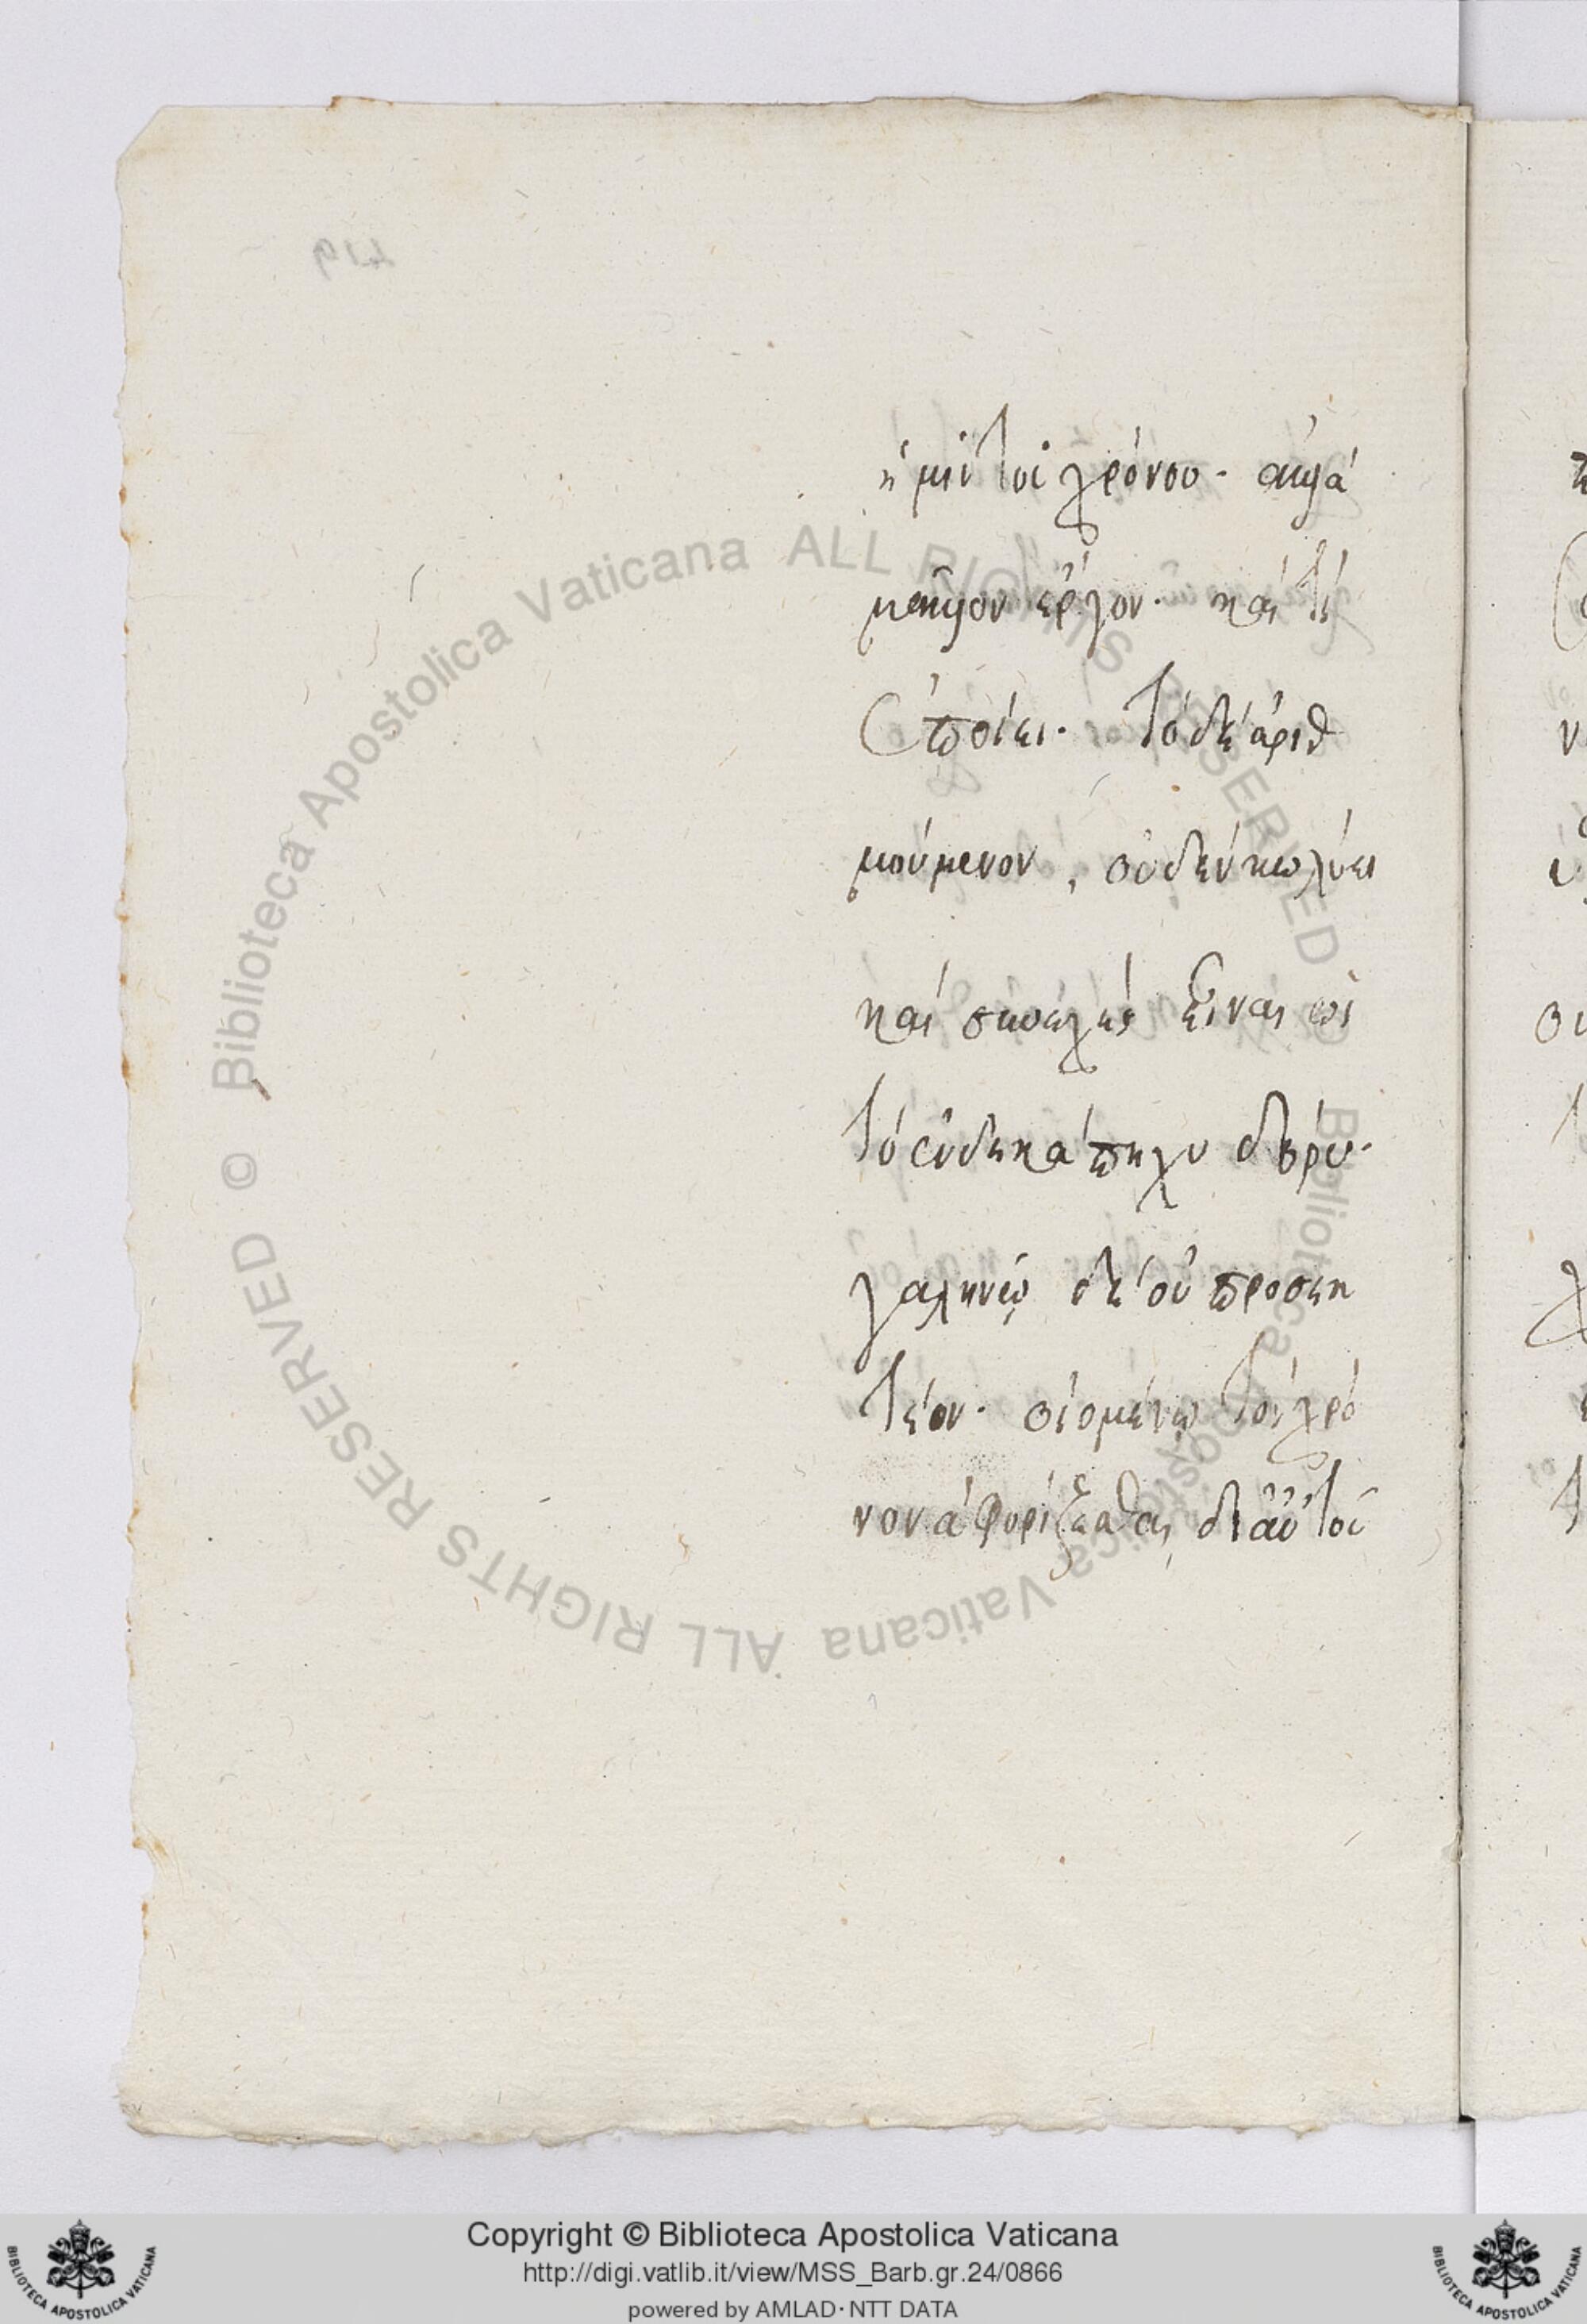 ἡμῖν τοῦ χρόνου· ἀλλὰ
μᾶλλον ἔργον· καὶ τί
ἐποίει· Τὸ δὲ ἀριθ
μούμενον, οὐδὲν κωλύει
καὶ συνεχὲς εἶναι ὡς
τὸ ἑνδεκάπηχυ δόρυ·
γαληνῷ δὲ οὐ προσεκ
τέον· οἰομένῳ τὸν χρό
νον ἀφορίζεσθαι δι αὑτοῦ
© Biblioteca Apostolica Vaticana ALL RIGHTS RESERVED © Biblioteca Apostolica Vaticana ALL RIGHTS RESERVED
Copyright © Biblioteca Apostolica Vaticana
http://digi.vatlib.it/view/MSS_Barb.gr.24/0866
powered by AMLAD·NTT DATA
BIBLIOTECA APOSTOLICA VATICANA
BIBLIOTECA APOSTOLICA VATICANA